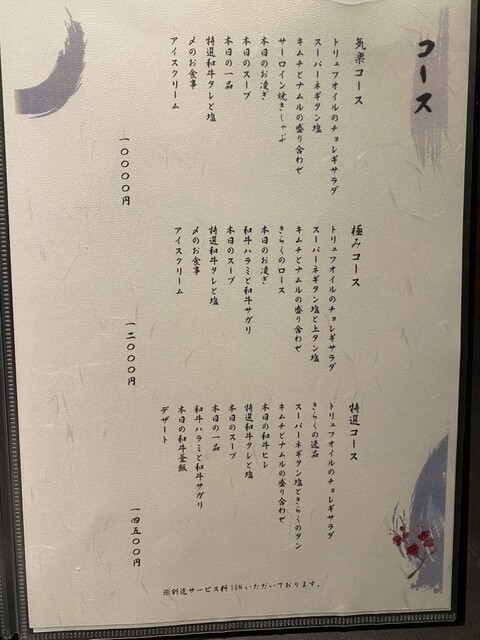 コース
気楽コース
トリュフオイルのチョレギサラダ
スーパーネギタン塩
キムチとナムルの盛り合わせ
サーロイン焼きしゃぶ
本日のお凌ぎ
本日のスープ
本日の一品
特選和牛タレと塩
〆のお食事
アイスクリーム
一〇〇〇〇円
極みコース
トリュフオイルのチョレギサラダ
スーパーネギタン塩と上タン塩
キムチとナムルの盛り合わせ
きらくのロース
本日のお凌ぎ
和牛ハラミと和牛サガリ
本日のスープ
特選和牛タレと塩
〆のお食事
アイスクリーム
一二〇〇〇円
特選コース
トリュフオイルのチョレギサラダ
きらくの逸品
スーパーネギタン塩ときらくのタン
キムチとナムルの盛り合わせ
本日の和牛ヒレ
特選和牛タレと塩
本日のスープ
本日の一品
和牛ハラミと和牛サガリ
本日の和牛釜飯
デザート
一四五〇〇円
※別途サービス料10%いただいております。